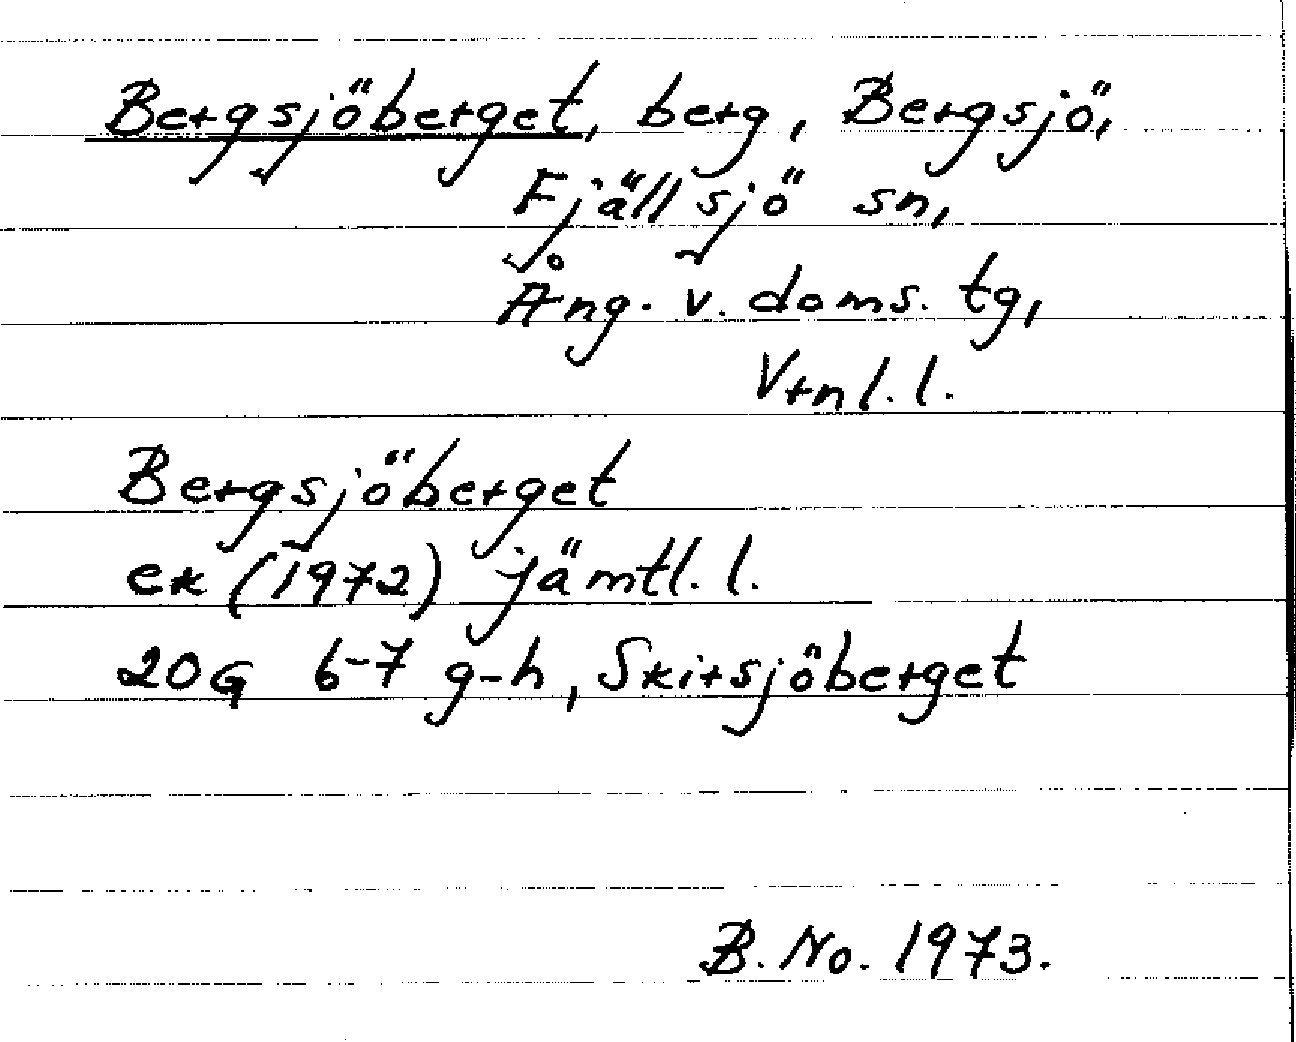 Bergsjöberget, berg, Bergsjö,
Fjällsjö sn,
Ång. v. doms. tg,
Vrnl. l.
Bergsjöberget
ek (1972) jämtl. l.
20G 6-7 g-h, Skirsjöberget
B. No. 1973.